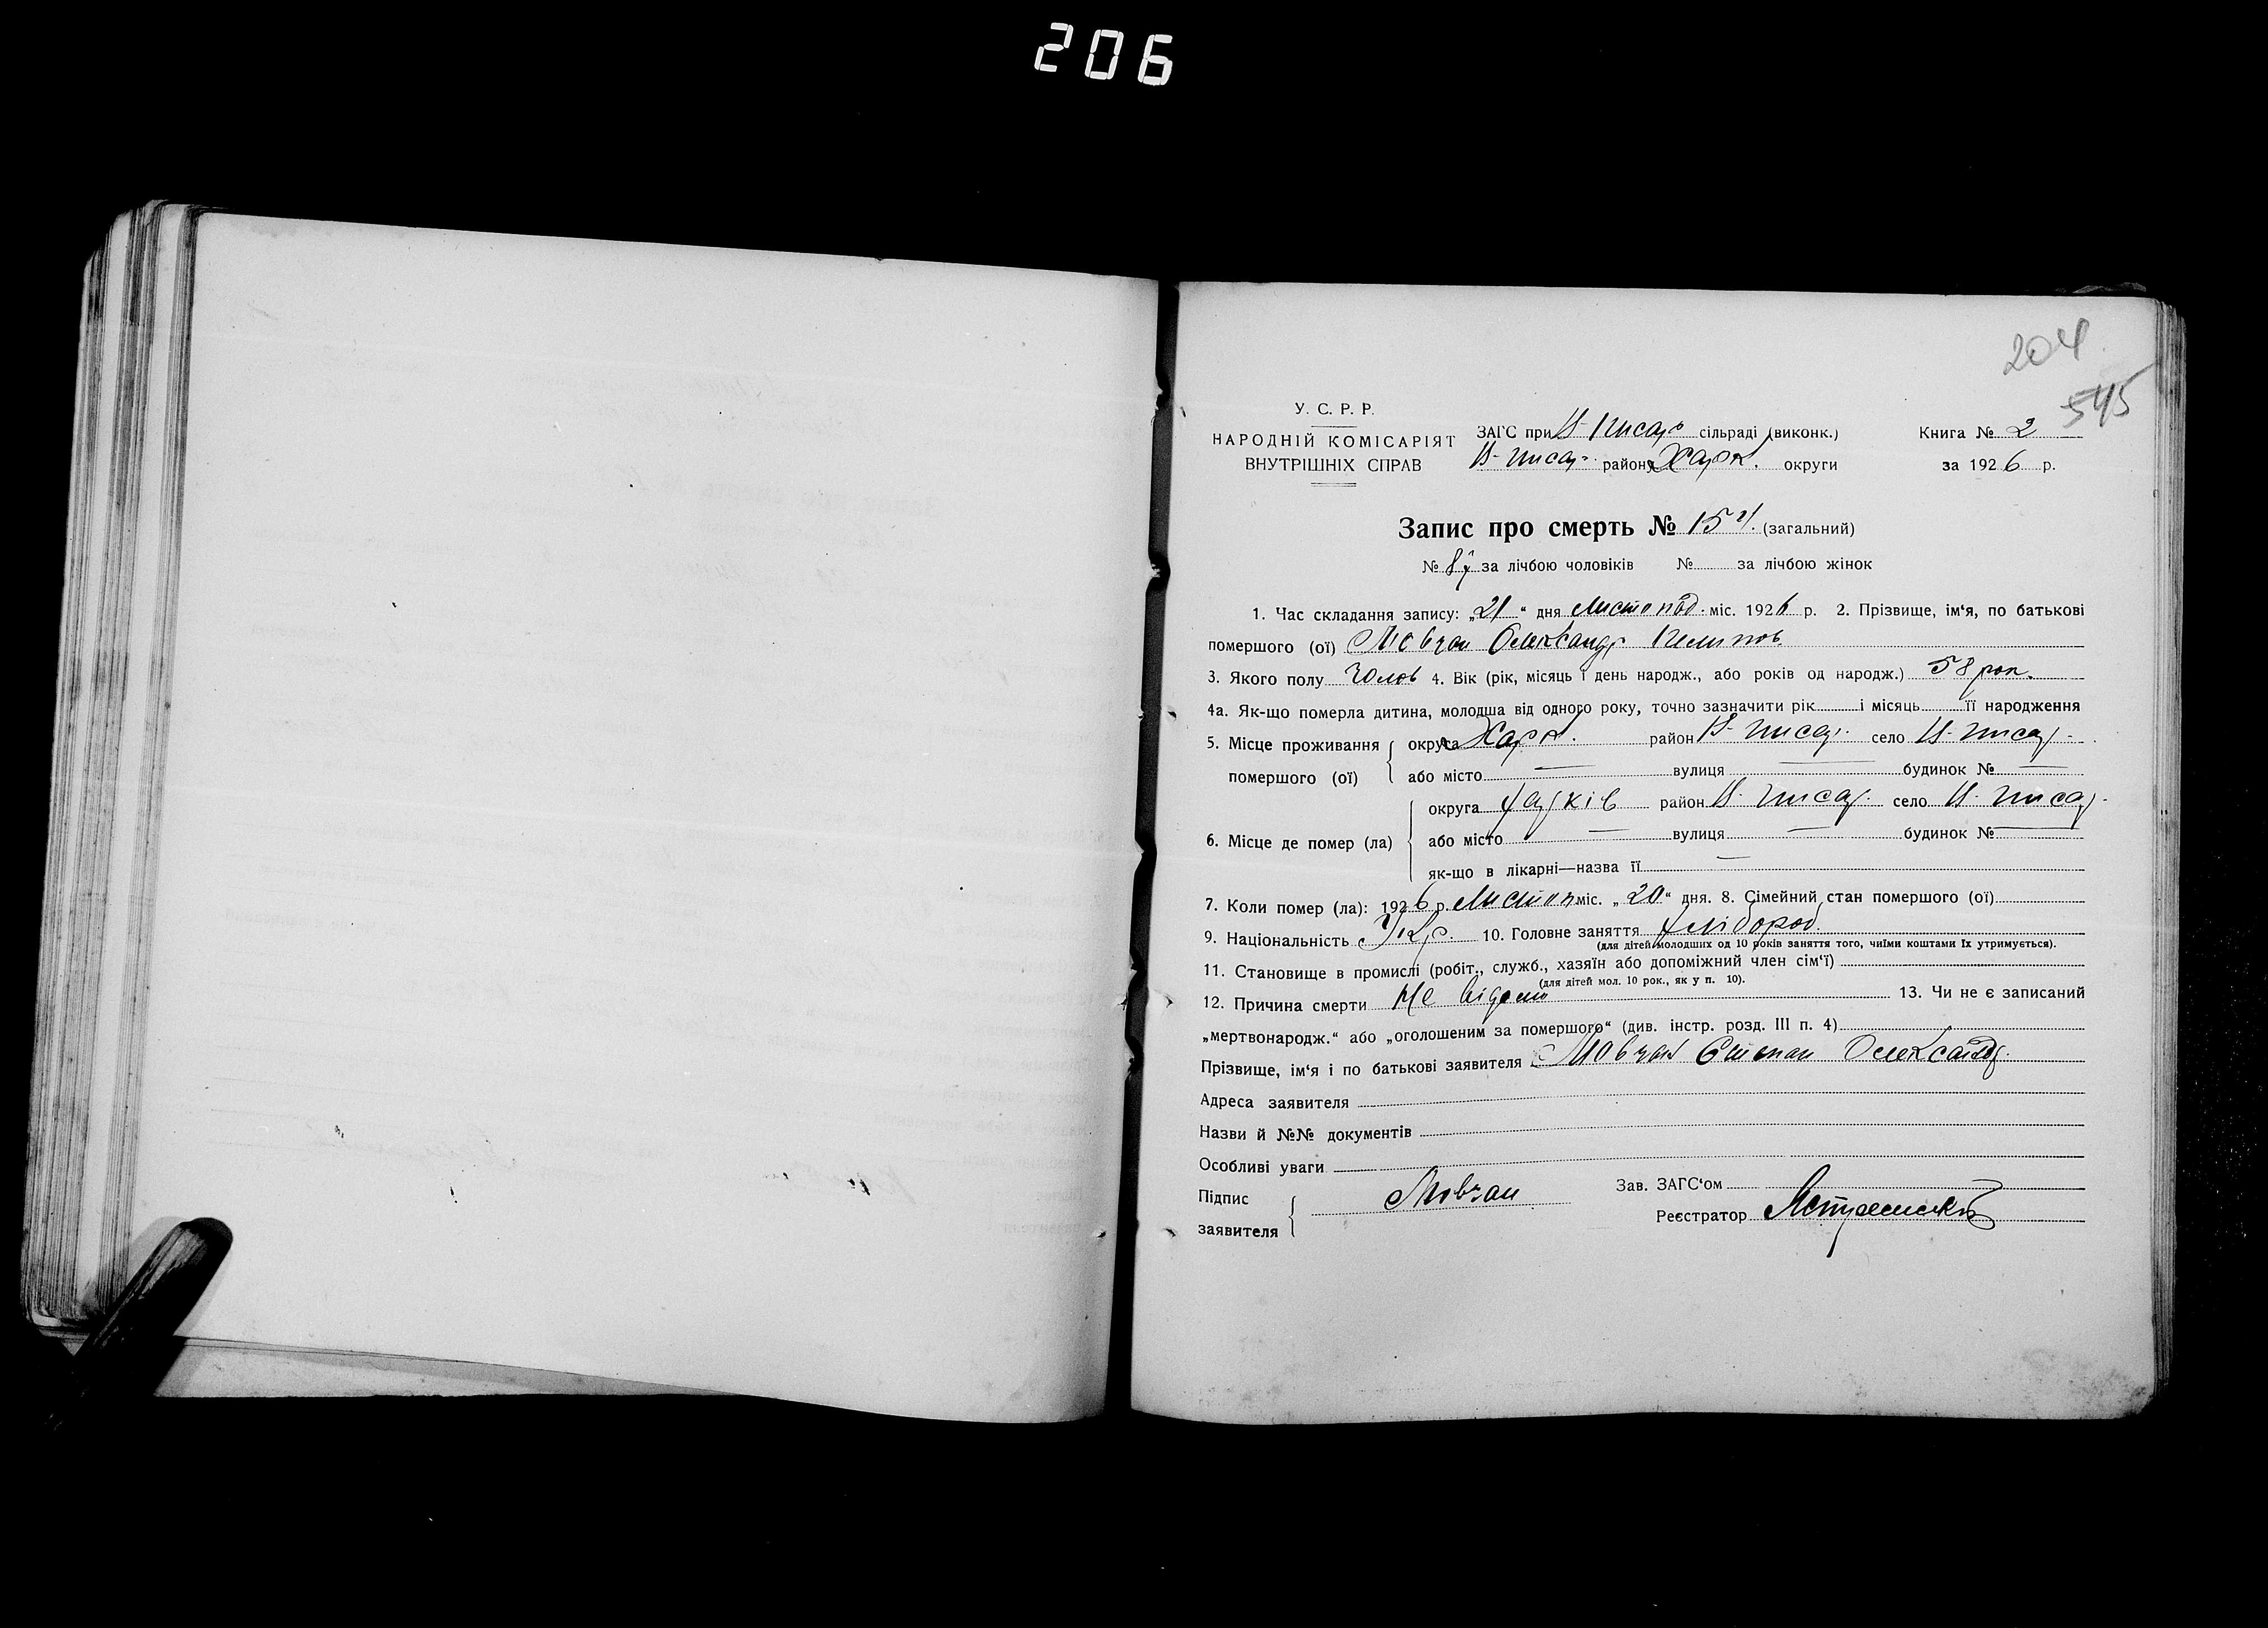 206
204
545
У. С. Р. Р.
НАРОДНІЙ КОМІСАРІЯТ
ВНУТРІШНІХ СПРАВ
ЗАГС при Н-Писар сільраді (виконк.)
Н-Писар району Харк. округи
Книга № 2
за 1926 р.
Запис про смерть № 154. (загальний)
№ 87 за лічбою чоловіків № за лічбою жінок
1. Час складання запису: „21“ дня Листопад. міс. 1926 р. 2. Прізвище, ім‘я, по батькові
помершого (ої) Мовчан Олександр Пилипов.
3. Якого полу Чолов 4. Вік (рік, місяць і день народж., або років од народж.) 58 рок.
4а. Як-що померла дитина, молодша від одного року, точно зазначити рік і місяць її народження
5. Місце проживання помершого (ої)
округа Харк. район Н-Писар. село Н-Писар-
або місто — вулиця — будинок № —
6. Місце де помер (ла)
округа Харків район Н-Писар. село Н-Писар.
або місто — вулиця — будинок № —
як-що в лікарні—назва її —
7. Коли помер (ла): 1926 р. Листоп міс. „20“ дня. 8. Сімейний стан помершого (ої)
9. Національність Укр. 10. Головне заняття хлібороб.
(для дітей молодших од 10 років заняття того, чиїми коштами їх утримується).
11. Становище в промислі (робіт., служб., хазяїн або допоміжний член сім‘ї)
(для дітей мол. 10 рок., як у п. 10).
12. Причина смерти Не відомо 13. Чи не є записаний
„мертвонародж.“ або „оголошеним за помершого“ (див. інстр. розд. III п. 4)
Прізвище, ім‘я і по батькові заявителя Мовчан Степан Олександр.
Адреса заявителя
Назви й №№ документів
Особливі уваги
Підпис заявителя Мовчан
Зав. ЗАГС‘ом
Реєстратор